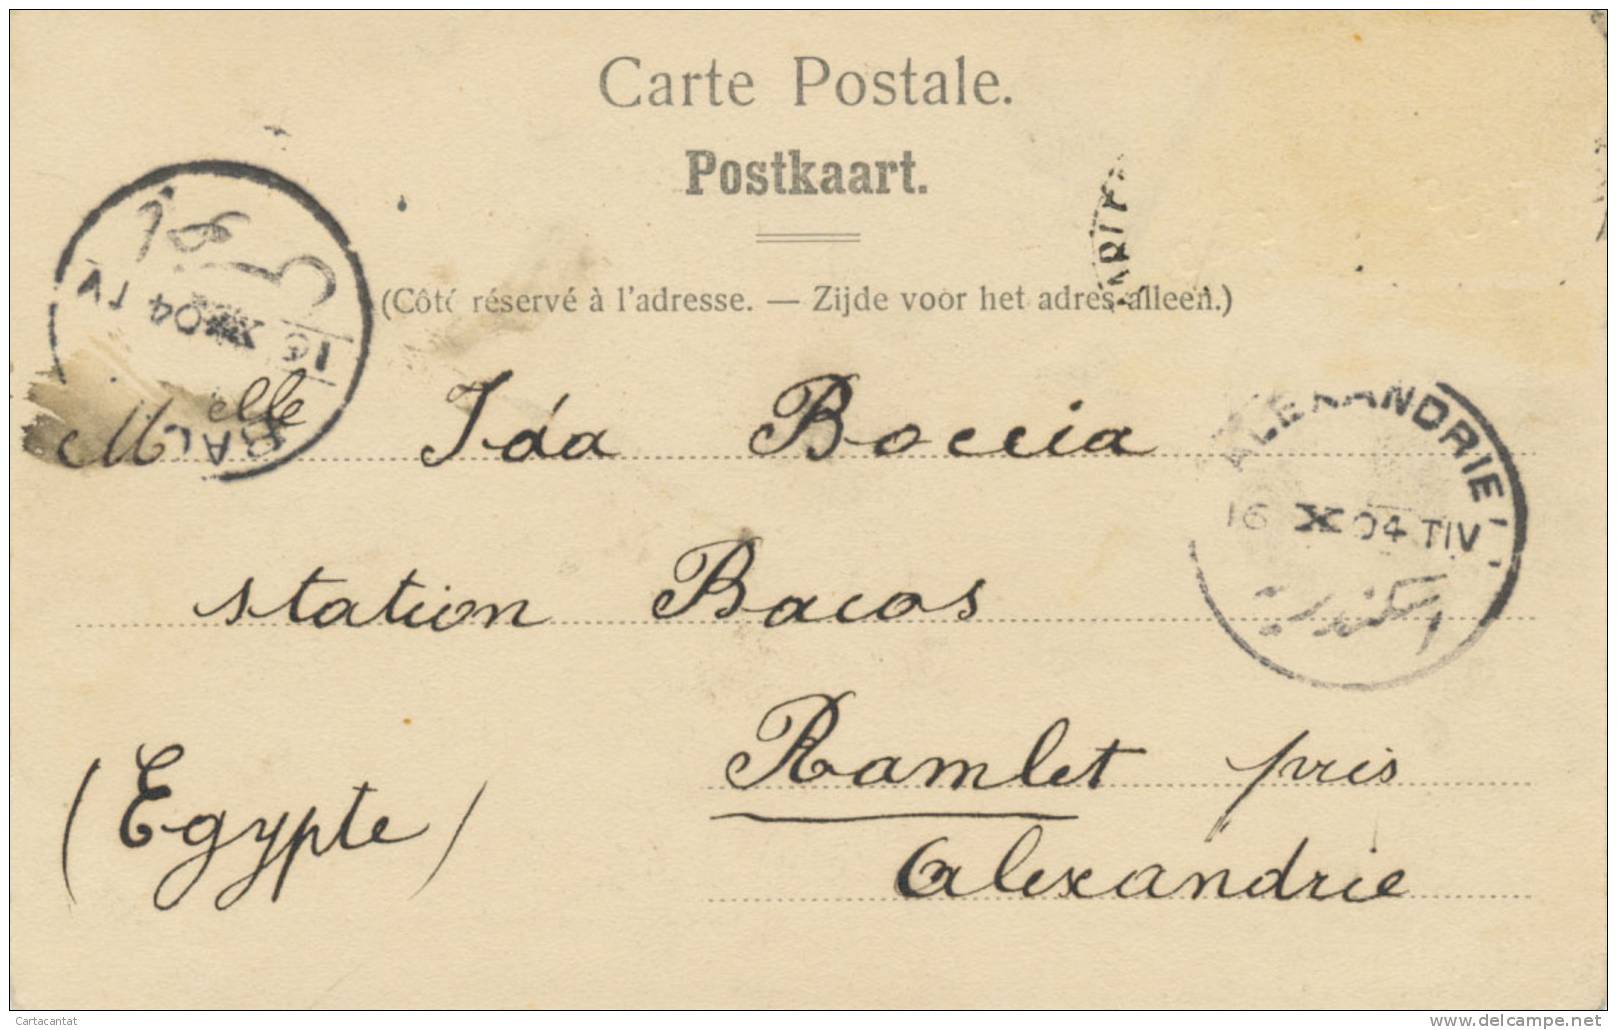 Carte Postale.
Postkaart.
(Côté réservé à l'adresse. — Zijde voor het adres alleen.)
Melle Ida Boccia
station Bacos
Ramlet pris
Alexandrie
(Egypte)
BAL
16 X 04 T V
ALEXANDRIE
16 X 04 TIV
اسكندرية
Cartacantat
www.delcampe.net